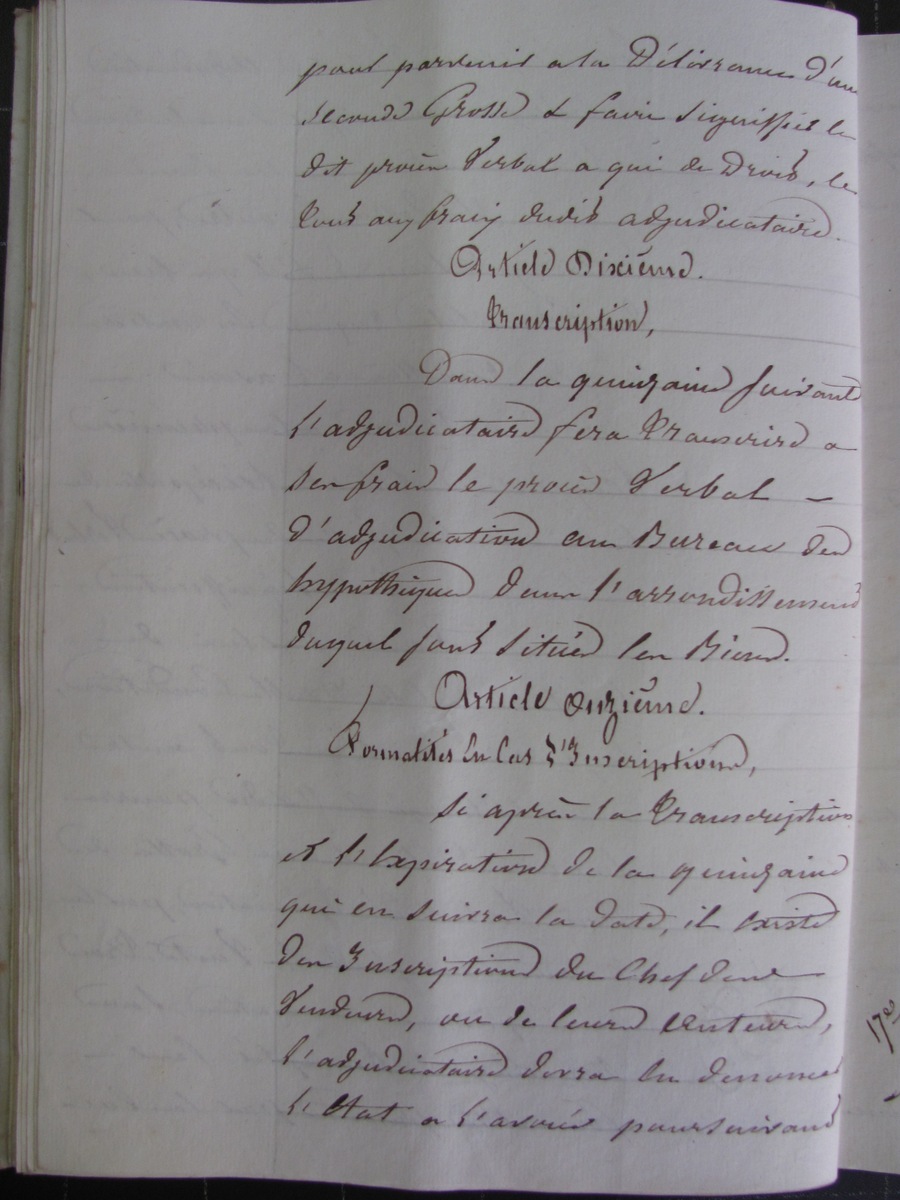 pour parvenir a la Délivrance d'une
seconde Grosse & faire signiffier le
dit procès Verbal a qui de Droit, le
tout aux frais dudit adjudicataire.
Article Dixième.
Transcription,
Dans la quinzaine suivante
l'adjudicataire fera Transcrire a
ses frais le procès Verbal –
d'adjudication au Bureau des
hypothèques dans l'arrondissement
duquel sont situés les Biens.
Article onzième.
Formalités En Cas d'Inscriptions,
Si après la Transcription
et l'Expiration de la quinzaine
qui en suivra la date, il Existe
des Inscriptions du Chef des
Vendeurs, ou de leurs auteurs,
l'adjudicataire devra En dénoncer
l'Etat a l'avoué poursuivant
17es